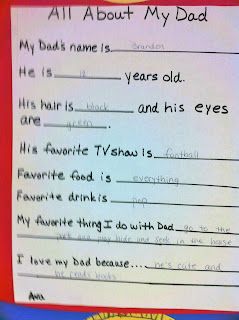 All About My Dad
My Dad's name is Brandon
He is 12 years old.
His hair is black and his eyes
are green.
His favorite TV show is football
Favorite food is everything
Favorite drink is pop
My favorite thing I do with Dad go to the
park and play hide and seek in the house
I love my Dad because... he's cute and
he reads books
Ava